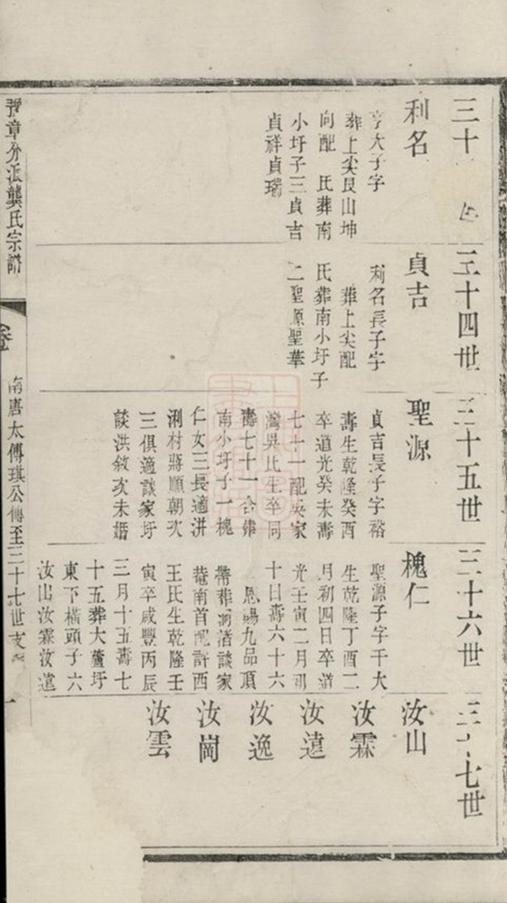 三十
利名
亨大子字
葬上尖艮山坤
向配　氏葬南
小圩子三貞吉
貞祥貞瑞
三十四世
貞吉
利名長子字
葬上尖配
氏葬南小圩子
二聖源聖華
三十五世
聖源
貞吉長子字裕
壽生乾隆癸酉
卒道光癸未壽
七十一配吳家
灣吳氏生卒同
壽七十一合葬
南小圩子一槐
仁女三長適汫
浰村蔣順朝次
三俱適談家圩
談洪敘次未婚
三十六世
槐仁
聖源子字干大
生乾隆丁酉二
月初四日卒道
光壬寅二月初
十日壽六十六
恩賜九品頂
帶葬湖渚談家
菴南首配許西
王氏生乾隆壬
寅卒咸豐丙辰
三月十五壽七
十五葬大蘆圩
東下橫頭子六
汝山汝霖汝遠
三十七世
汝山
汝霖
汝遠
汝逸
汝崗
汝雲
豫章分派龔氏宗譜
卷
南唐太傅琪公傳至三十七世支
一